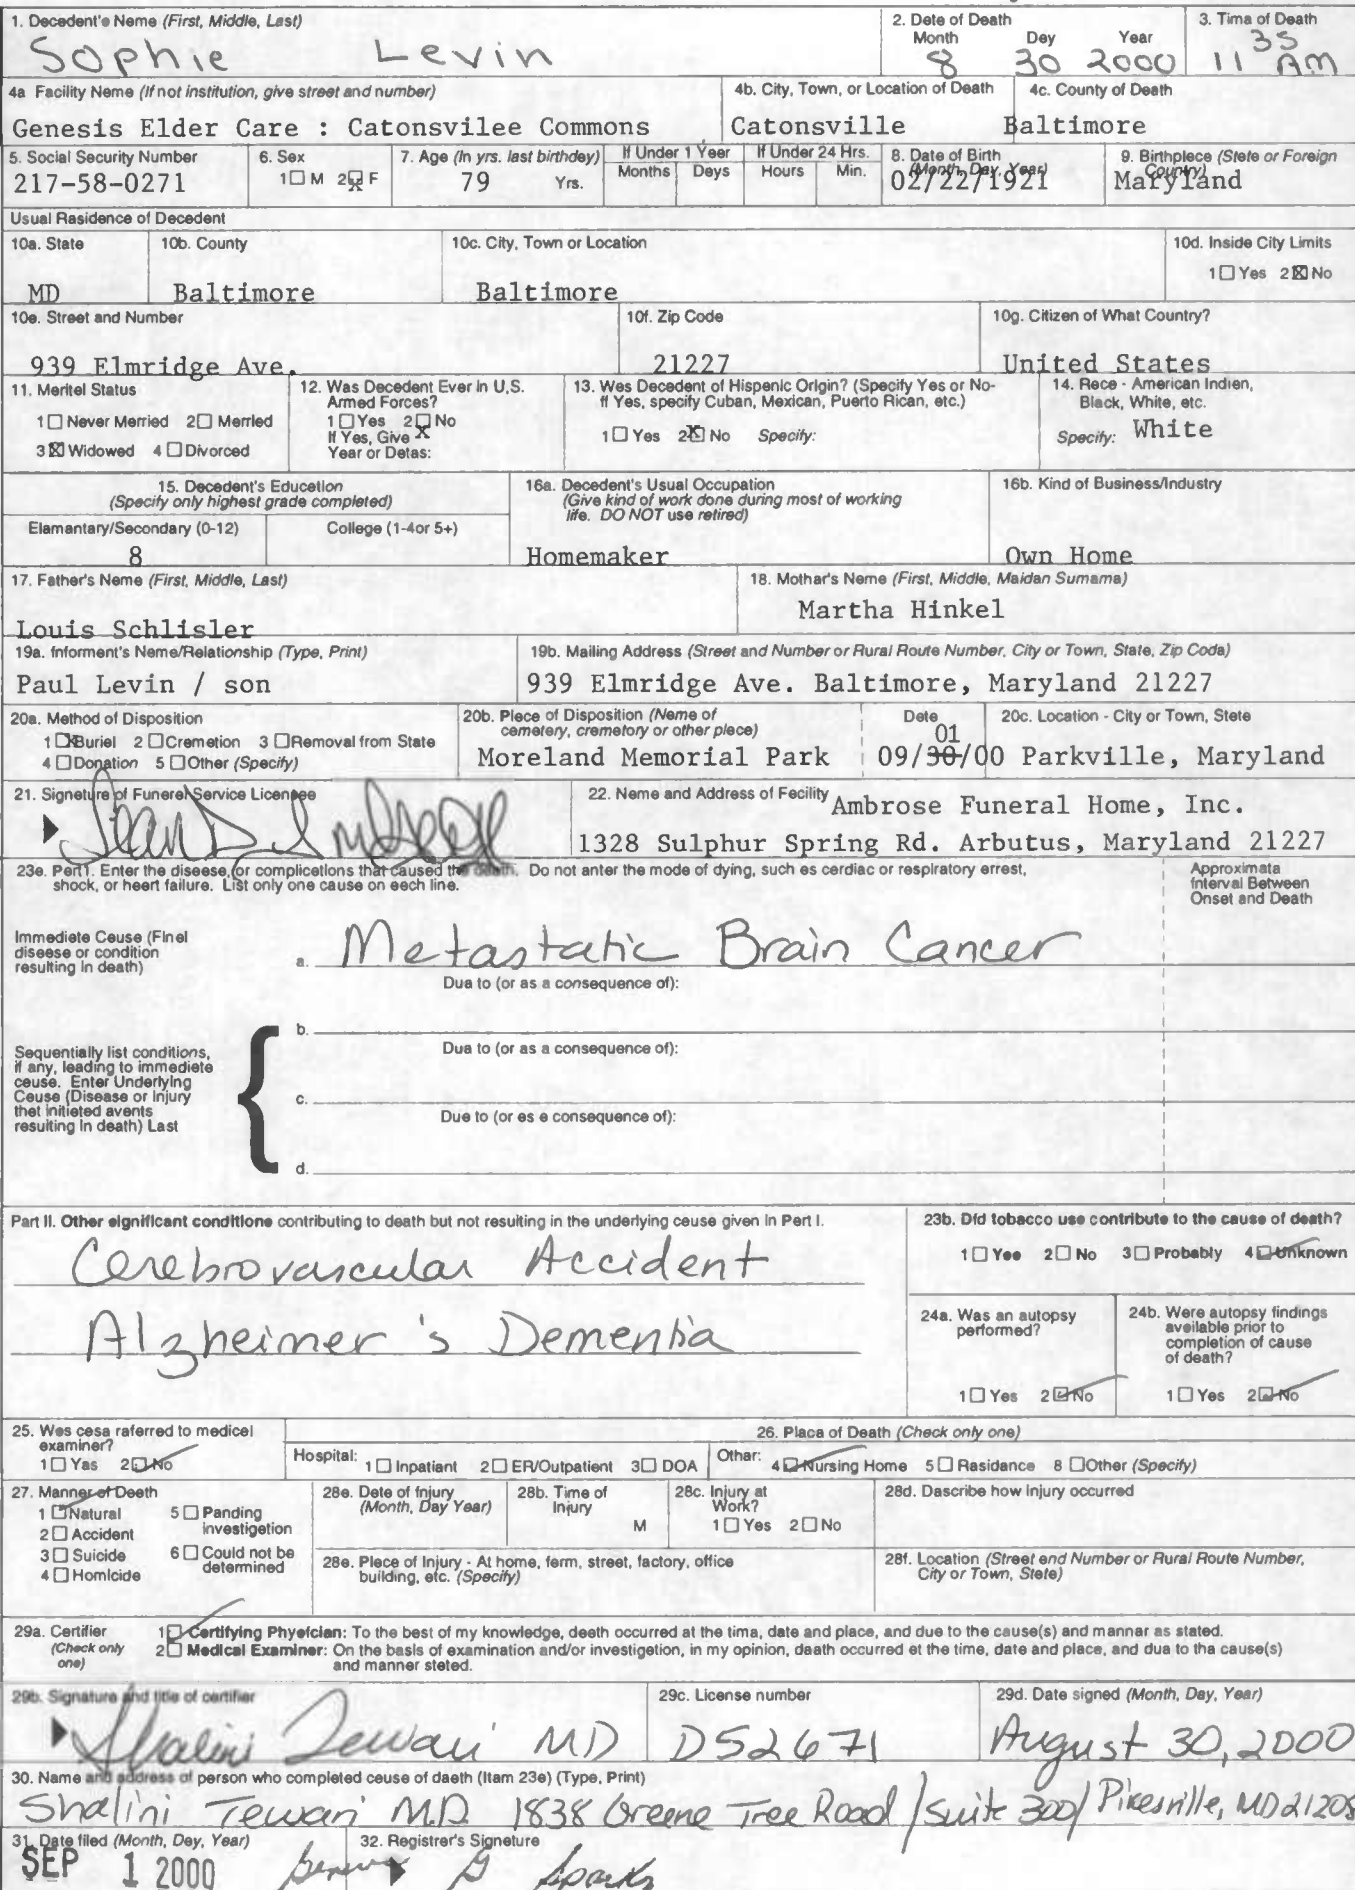 1. Decedent's Name (First, Middle, Last)
Sophie Levin
2. Date of Death
Month Day Year
8 30 2000
3. Time of Death
11 35 AM
4a Facility Name (If not institution, give street and number)
Genesis Elder Care : Catonsvilee Commons
4b. City, Town, or Location of Death
Catonsville
4c. County of Death
Baltimore
5. Social Security Number
217-58-0271
6. Sex
1☐ M 2☒ F
7. Age (In yrs. last birthday)
79 Yrs.
If Under 1 Year
Months Days
If Under 24 Hrs.
Hours Min.
8. Date of Birth
(Month, Day, Year)
02/22/1921
9. Birthplace (State or Foreign
Country)
Maryland
Usual Residence of Decedent
10a. State
MD
10b. County
Baltimore
10c. City, Town or Location
Baltimore
10d. Inside City Limits
1☐ Yes 2☒ No
10e. Street and Number
939 Elmridge Ave.
10f. Zip Code
21227
10g. Citizen of What Country?
United States
11. Marital Status
1☐ Never Married 2☐ Married
3☒ Widowed 4☐ Divorced
12. Was Decedent Ever in U.S.
Armed Forces?
1☐ Yes 2☒ No
If Yes, Give
Year or Dates:
13. Was Decedent of Hispanic Origin? (Specify Yes or No-
If Yes, specify Cuban, Mexican, Puerto Rican, etc.)
1☐ Yes 2☒ No Specify:
14. Race - American Indian,
Black, White, etc.
Specify: White
15. Decedent's Education
(Specify only highest grade completed)
Elementary/Secondary (0-12) College (1-4or 5+)
8
16a. Decedent's Usual Occupation
(Give kind of work done during most of working
life. DO NOT use retired)
Homemaker
16b. Kind of Business/Industry
Own Home
17. Father's Name (First, Middle, Last)
Louis Schlisler
18. Mother's Name (First, Middle, Maiden Surname)
Martha Hinkel
19a. Informant's Name/Relationship (Type, Print)
Paul Levin / son
19b. Mailing Address (Street and Number or Rural Route Number, City or Town, State, Zip Code)
939 Elmridge Ave. Baltimore, Maryland 21227
20a. Method of Disposition
1☒ Burial 2☐ Cremation 3☐ Removal from State
4☐ Donation 5☐ Other (Specify)
20b. Place of Disposition (Name of
cemetery, crematory or other place)
Moreland Memorial Park
Date
01
09/30/00
20c. Location - City or Town, State
Parkville, Maryland
21. Signature of Funeral Service Licensee
22. Name and Address of Facility
Ambrose Funeral Home, Inc.
1328 Sulphur Spring Rd. Arbutus, Maryland 21227
23a. Part I. Enter the disease, or complications that caused the death. Do not enter the mode of dying, such as cardiac or respiratory arrest,
shock, or heart failure. List only one cause on each line.
Approximate
Interval Between
Onset and Death
Immediate Cause (Final
disease or condition
resulting in death)
a. Metastatic Brain Cancer
Due to (or as a consequence of):
b.
Due to (or as a consequence of):
Sequentially list conditions,
if any, leading to immediate
cause. Enter Underlying
Cause (Disease or Injury
that initiated events
resulting in death) Last
c.
Due to (or as a consequence of):
d.
Part II. Other significant conditions contributing to death but not resulting in the underlying cause given in Part I.
Cerebrovascular Accident
Alzheimer's Dementia
23b. Did tobacco use contribute to the cause of death?
1☐ Yes 2☐ No 3☐ Probably 4☑ Unknown
24a. Was an autopsy
performed?
1☐ Yes 2☑ No
24b. Were autopsy findings
available prior to
completion of cause
of death?
1☐ Yes 2☑ No
25. Was case referred to medical
examiner?
1☐ Yes 2☑ No
26. Place of Death (Check only one)
Hospital: 1☐ Inpatient 2☐ ER/Outpatient 3☐ DOA
Other: 4☑ Nursing Home 5☐ Residence 8☐ Other (Specify)
27. Manner of Death
1☑ Natural
2☐ Accident
3☐ Suicide
4☐ Homicide
5☐ Pending
investigation
6☐ Could not be
determined
28a. Date of Injury
(Month, Day Year)
28b. Time of
Injury
M
28c. Injury at
Work?
1☐ Yes 2☐ No
28d. Describe how injury occurred
28e. Place of Injury - At home, farm, street, factory, office
building, etc. (Specify)
28f. Location (Street and Number or Rural Route Number,
City or Town, State)
29a. Certifier
(Check only
one)
1☑ Certifying Physician: To the best of my knowledge, death occurred at the time, date and place, and due to the cause(s) and manner as stated.
2☐ Medical Examiner: On the basis of examination and/or investigation, in my opinion, death occurred at the time, date and place, and due to the cause(s)
and manner stated.
29b. Signature and title of certifier
Shalini Tewari MD
29c. License number
D52671
29d. Date signed (Month, Day, Year)
August 30, 2000
30. Name and address of person who completed cause of death (Item 23a) (Type, Print)
Shalini Tewari M.D. 1838 Greene Tree Road / Suite 300 / Pikesville, MD 21208
31. Date filed (Month, Day, Year)
SEP 1 2000
32. Registrar's Signature
Sparks